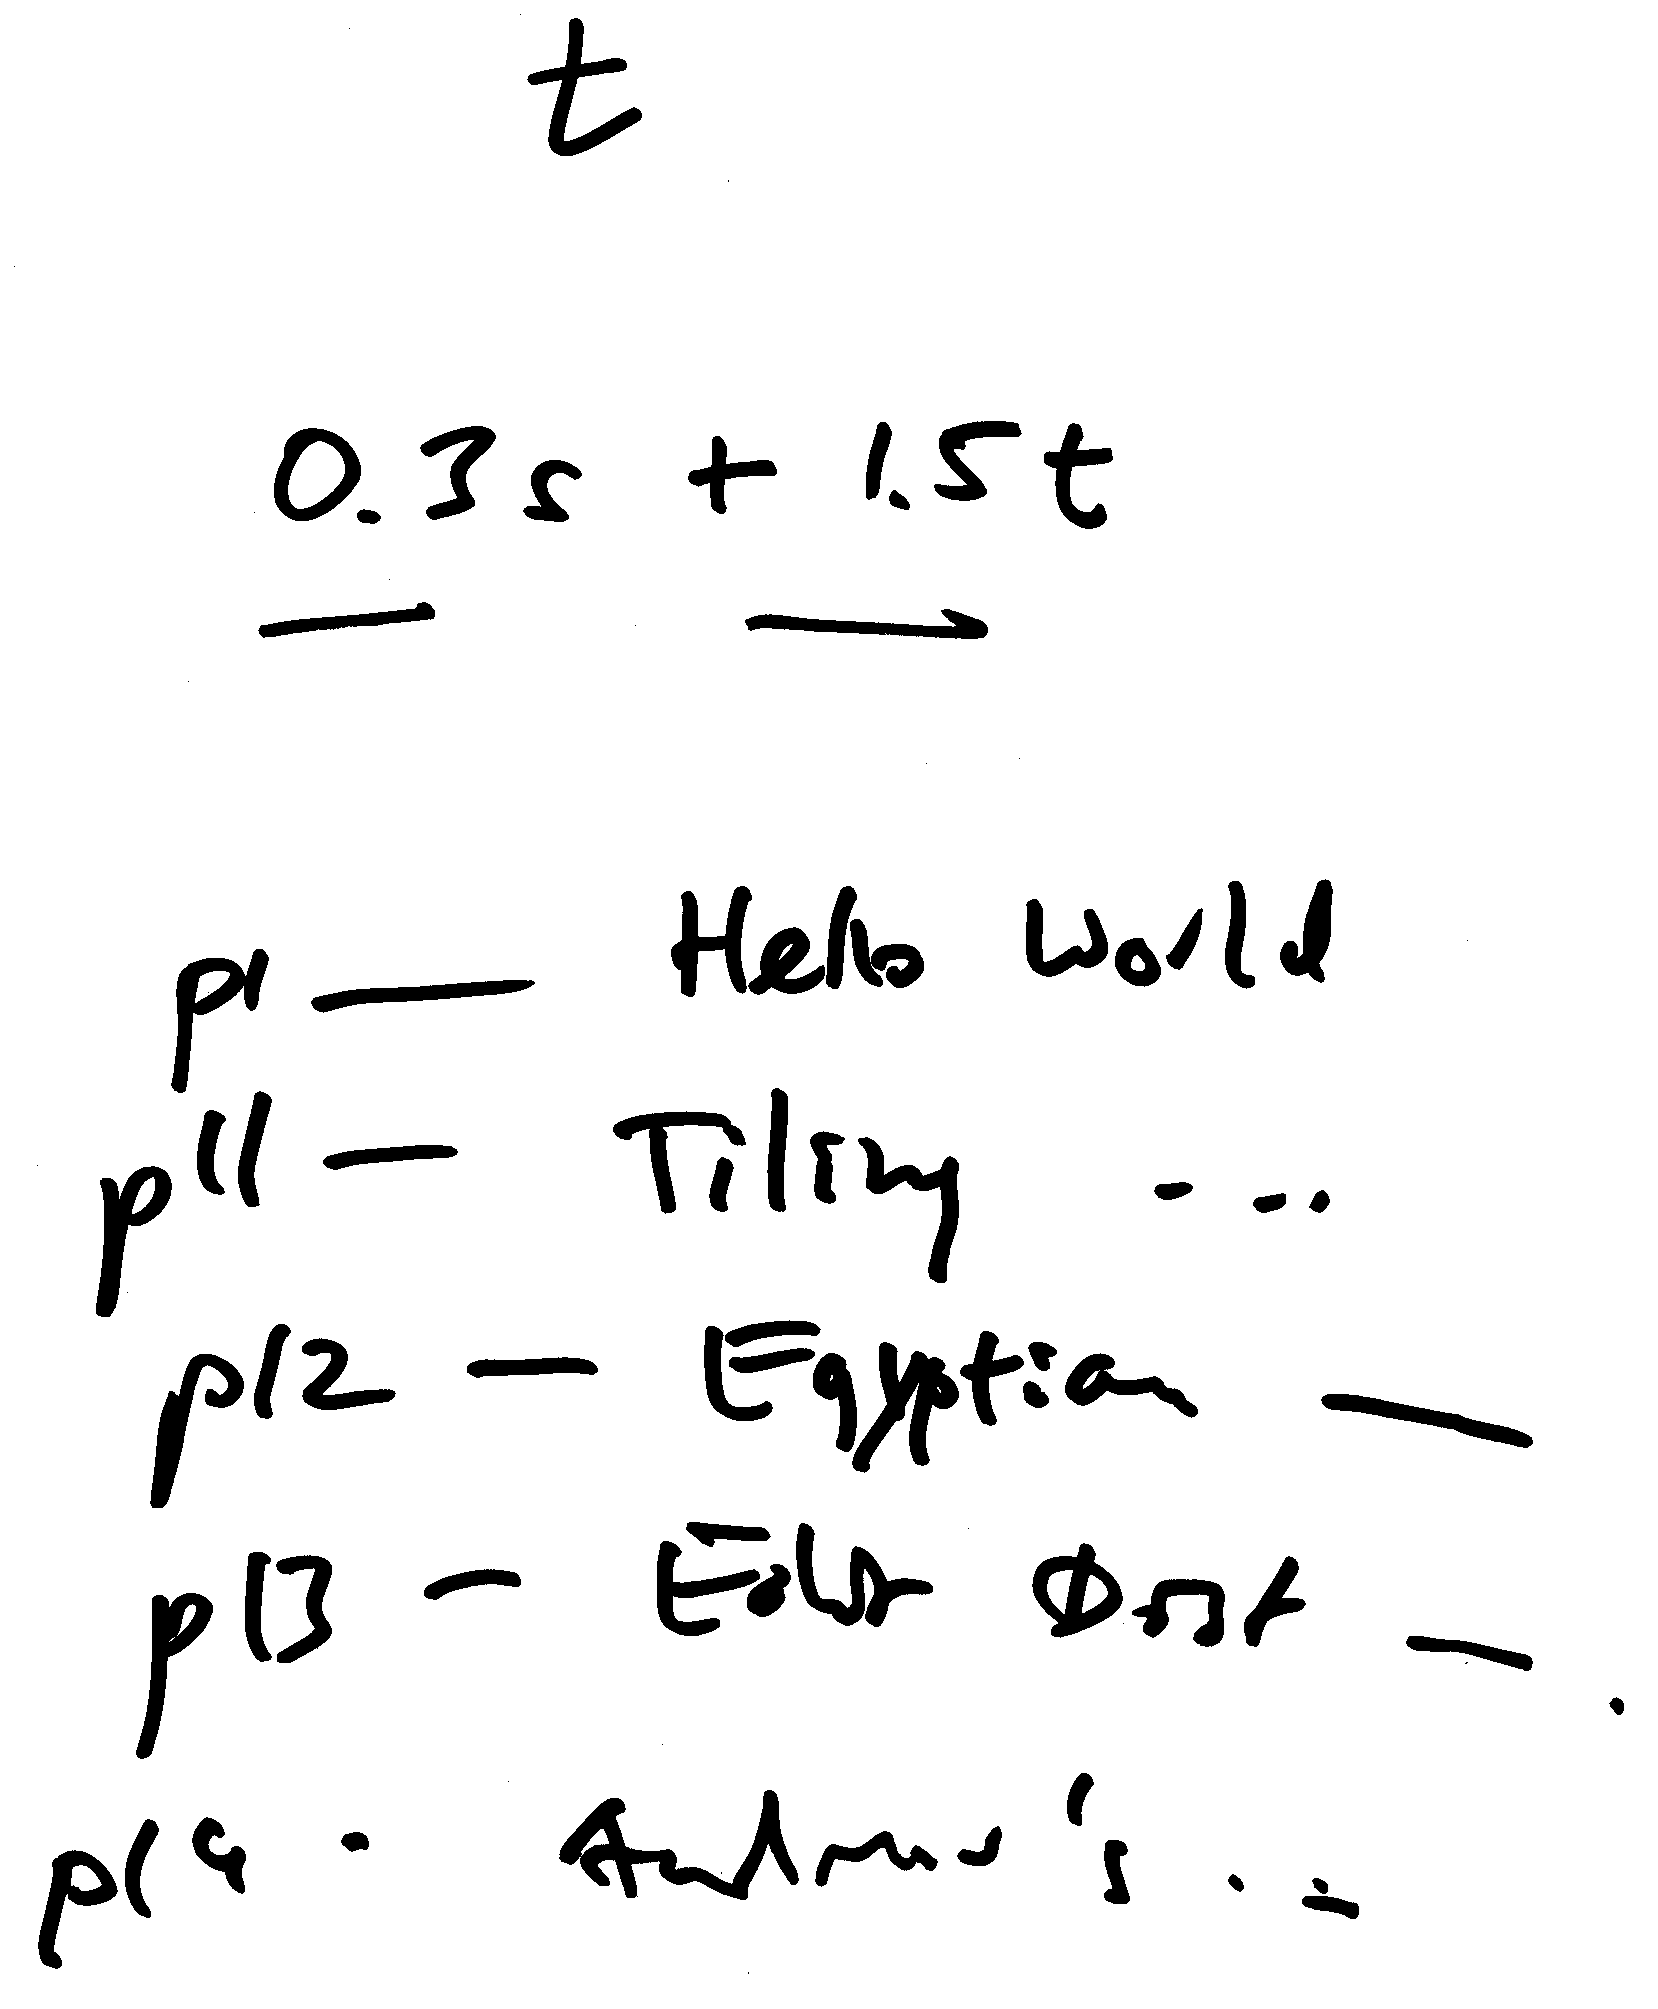 t
0.3s + 1.5t
p1 — Hello World
p11 — Tiling ...
p12 — Egyptian —
p13 —
p14 -